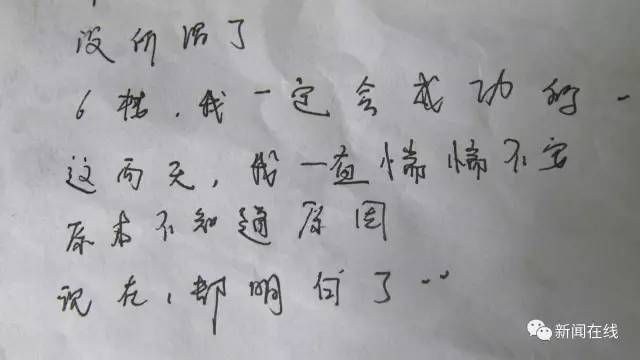 没所谓了
6楼，我一定会成功的..
这两天，我一直惴惴不安
原来不知道原因
现在，都明白了..
新闻在线